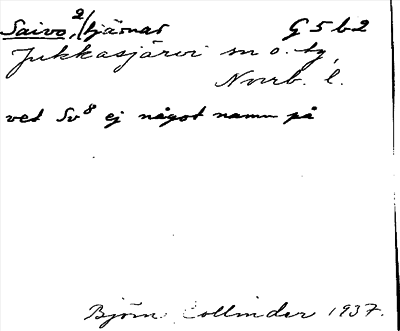 Saivo, 2/tjärnar G5b2
Jukkasjärvi sn o. tg,
Norrb. l.
vet Sv8 ej något namn på
Björn Collinder 1937.